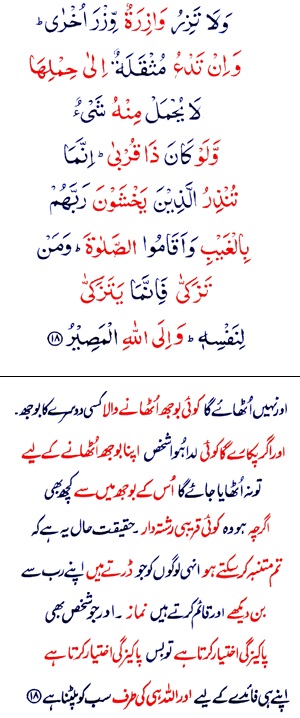 وَلَا تَزِرُ وَازِرَةٌ وِّزْرَ اُخْرٰى ؕ
وَاِنْ تَدْعُ مُثْقَلَةٌ اِلٰى حِمْلِهَا
لَا يُحْمَلْ مِنْهُ شَىْءٌ
وَّلَوْ كَانَ ذَا قُرْبٰى ؕ اِنَّمَا
تُنْذِرُ الَّذِيْنَ يَخْشَوْنَ رَبَّهُمْ
بِالْغَيْبِ وَاَقَامُوا الصَّلٰوةَ ؕ وَمَنْ
تَزَكّٰى فَاِنَّمَا يَتَزَكّٰى
لِنَفْسِهٖ ؕ وَاِلَى اللّٰهِ الْمَصِيْرُ ﴿۱۸﴾
اور نہیں اُٹھائے گا کوئی بوجھ اُٹھانے والا کسی دوسرے کا بوجھ۔
اور اگر پکارے گا کوئی لدا ہُوا شخص اپنا بوجھ اُٹھانے کے لیے
تو نہ اُٹھایا جائے گا اُس کے بوجھ میں سے کچھ بھی
اگرچہ ہو وہ کوئی قریبی رشتہ دار۔ حقیقت حال یہ ہے کہ
تم متنبہ کر سکتے ہو انہی لوگوں کو جو ڈرتے ہیں اپنے رب سے
بن دیکھے اور قائم کرتے ہیں نماز۔ اور جو شخص بھی
پاکیزگی اختیار کرتا ہے تو بس پاکیزگی اختیار کرتا ہے
اپنے ہی فائدے کے لیے اور اللہ ہی کی طرف سب کو پلٹنا ہے ﴿۱۸﴾